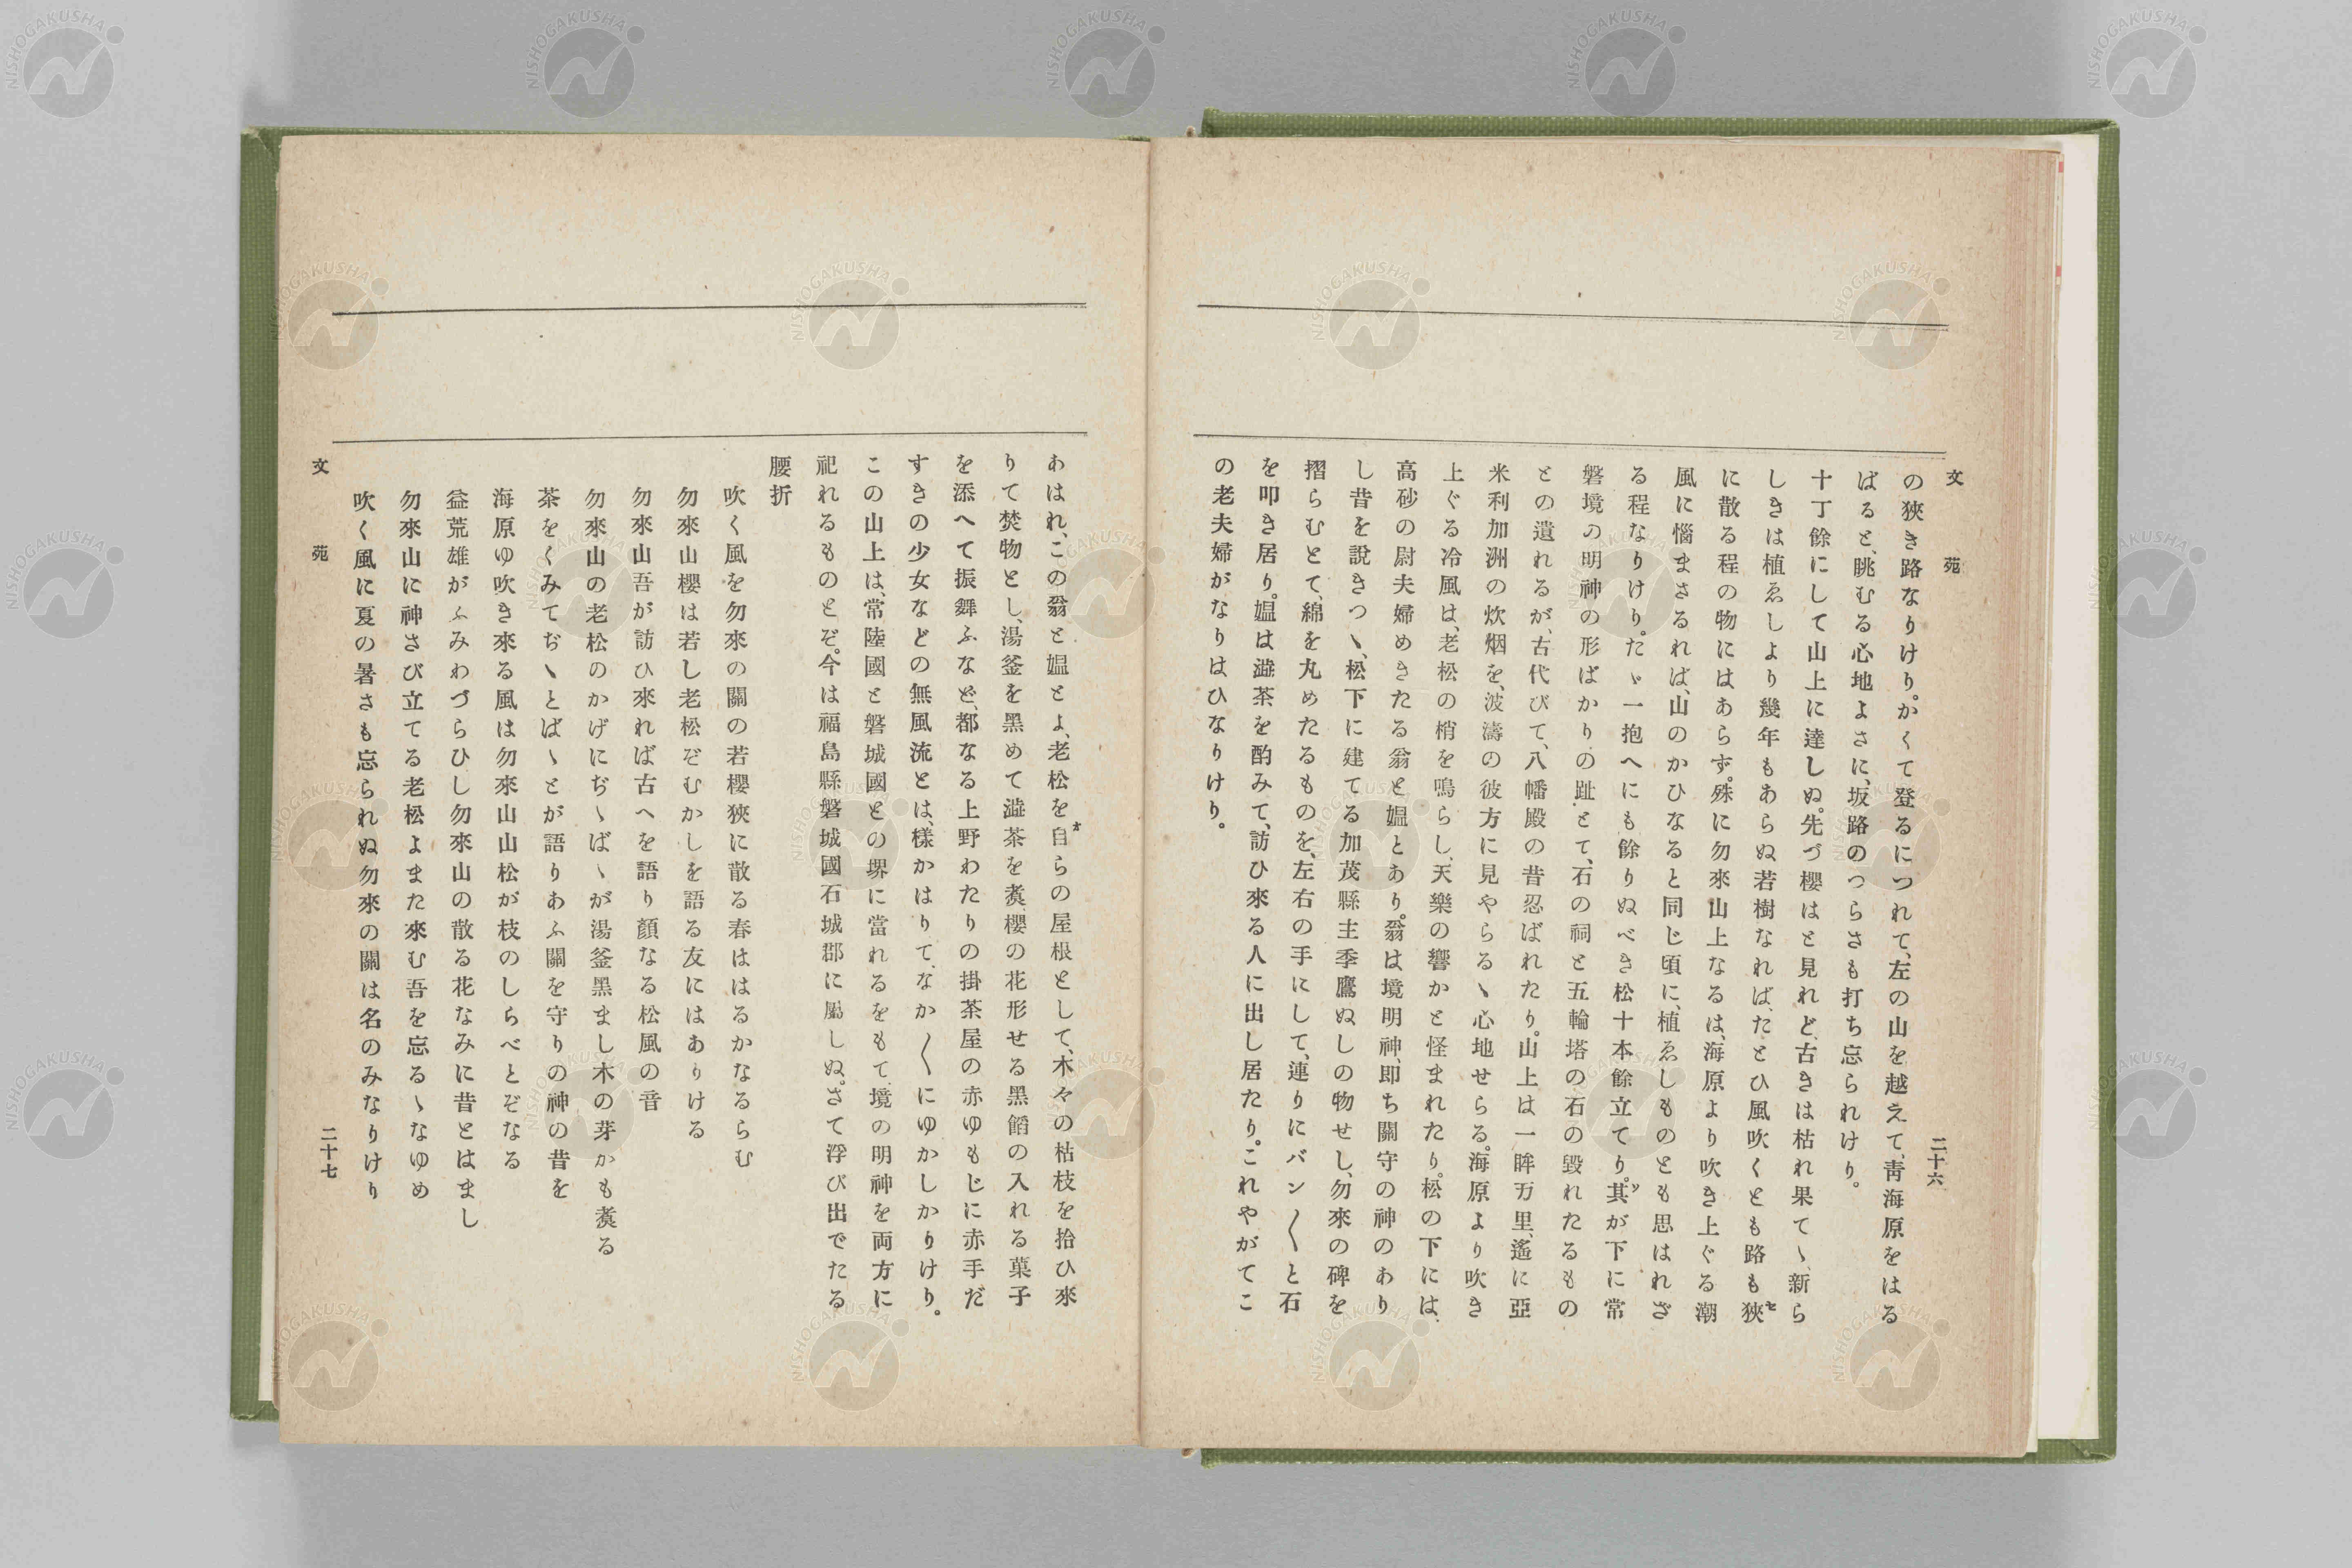 文苑
二十六
の狹き路なりけり。かくて登るにつれて、左の山を越えて、靑海原をはる
ばると、眺むる心地よさに、坂路のつらさも打ち忘られけり。
十丁餘にして山上に達しぬ。先づ櫻はと見れど、古きは枯れ果てゝ、新ら
しきは植ゑしより幾年もあらぬ若樹なれば、たとひ風吹くとも路も狹セ
に散る程の物にはあらず。殊に勿來山上なるは、海原より吹き上ぐる潮
風に惱まさるれば、山のかひなると同じ頃に、植ゑしものとも思はれざ
る程なりけり。たゞ一抱へにも餘りぬべき松十本餘立てり。其ソが下に常
磐境の明神の形ばかりの趾とて、石の祠と五輪塔の石の毀れたるもの
との遺れるが、古代びて、八幡殿の昔忍ばれたり。山上は一眸万里、遙に亞
米利加洲の炊烟を、波濤の彼方に見やらるゝ心地せらる。海原より吹き
上ぐる冷風は、老松の梢を鳴らし、天樂の響かと怪まれたり。松の下には、
高砂の尉夫婦めきたる翁と媼とあり。翁は境明神、即ち關守の神のあり
し昔を說きつゝ、松下に建てる加茂縣主季鷹ぬしの物せし、勿來の碑を
摺らむとて、綿を丸めたるものを、左右の手にして、連りにバン〳〵と石
を叩き居り。媼は澁茶を酌みて、訪ひ來る人に出し居たり。これやがてこ
の老夫婦がなりはひなりけり。
あはれ、この翁と媼とよ、老松を自オらの屋根として、木々の枯枝を拾ひ來
りて焚物とし、湯釜を黑めて澁茶を煑、櫻の花形せる黑餡の入れる菓子
を添へて振舞ふなど、都なる上野わたりの掛茶屋の赤ゆもじに赤手だ
すきの少女などの無風流とは、樣かはりて、なか〳〵にゆかしかりけり。
この山上は、常陸國と磐城國との堺に當れるをもて、境の明神を両方に
祀れるものとぞ。今は福島縣磐城國石城郡に屬しぬ。さて浮び出でたる
腰折
吹く風を勿來の關の若櫻狹に散る春ははるかなるらむ
勿來山櫻は若し老松ぞむかしを語る友にはありける
勿來山吾が訪ひ來れば古へを語り顏なる松風の音
勿來山の老松のかげにぢゝばゝが湯釜黑まし木の芽かも煑る
茶をくみてぢゝとばゝとが語りあふ關を守りの神の昔を
海原ゆ吹き來る風は勿來山山松が枝のしらべとぞなる
益荒雄がふみわづらひし勿來山の散る花なみに昔とはまし
勿來山に神さび立てる老松よまた來む吾を忘るゝなゆめ
吹く風に夏の暑さも忘られぬ勿來の關は名のみなりけり
文苑
二十七
NISHOGAKUSHA